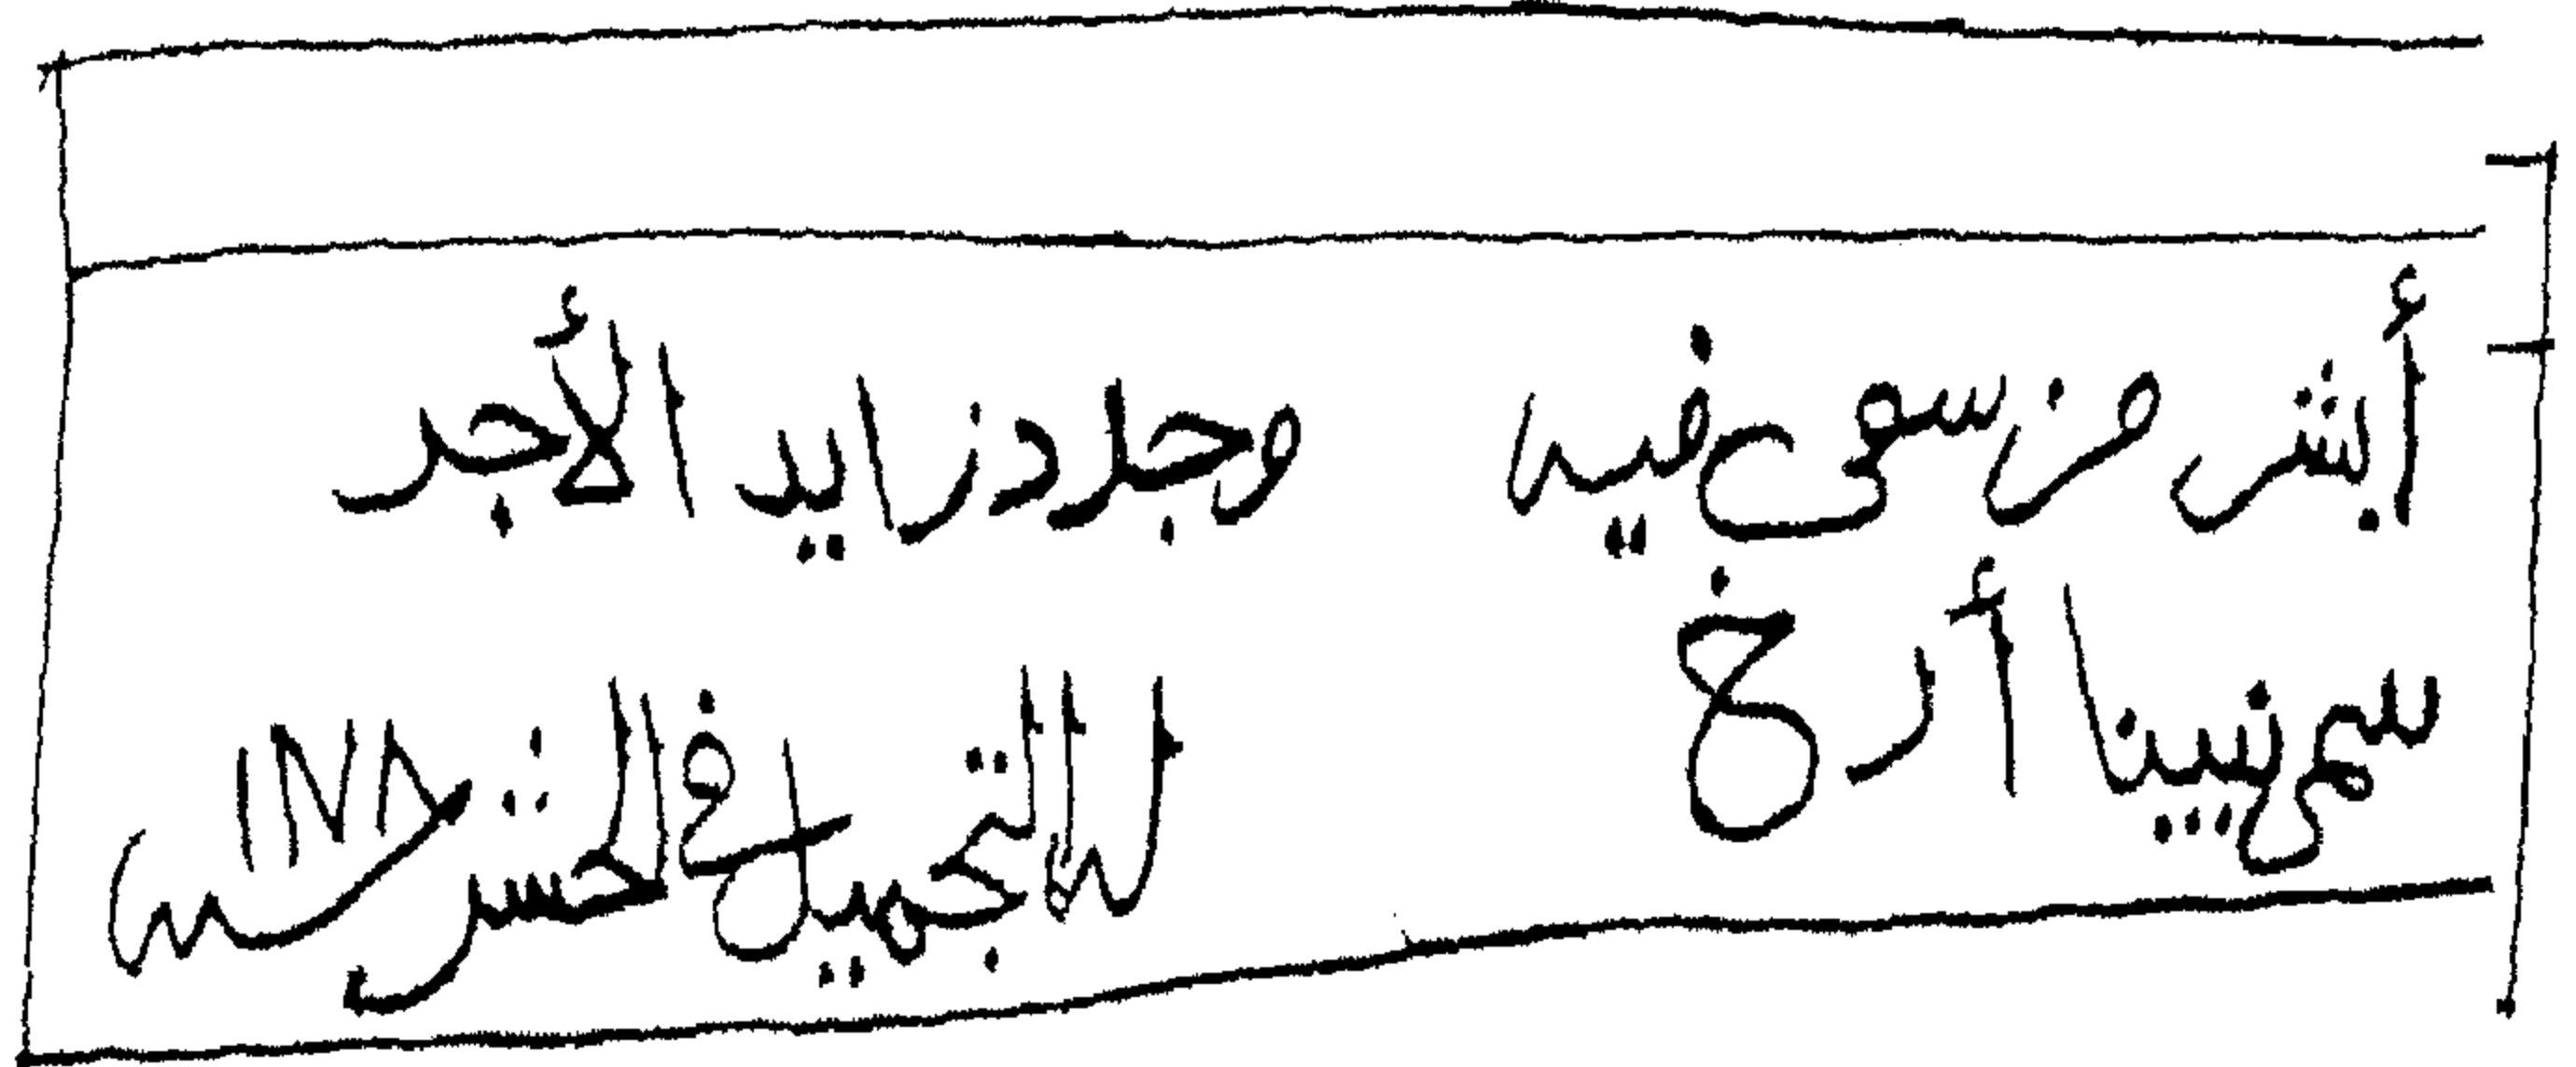 أبشر من سعى فيه وجدد زايد الأجر
سمي نبينا أرخ له التجميل في الحشر سنه ١١٧٨